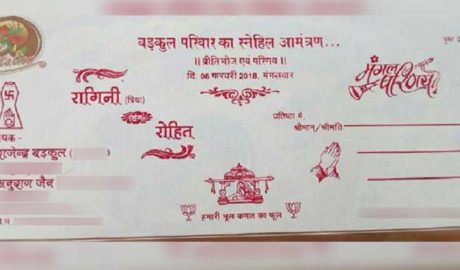 बड़कुल परिवार का स्नेहिल आमंत्रण...
॥ प्रीतिभोज एवं परिणय ॥
दि. 06 फरवरी 2018, मंगलवार
मंगल परिणय
रागिनी (प्रिया)
रोहित
प्रतिष्ठा में,
श्रीमान/श्रीमति
राजेन्द्र बड़कुल (
अनुराग जैन
हमारी भूल कमल का फूल